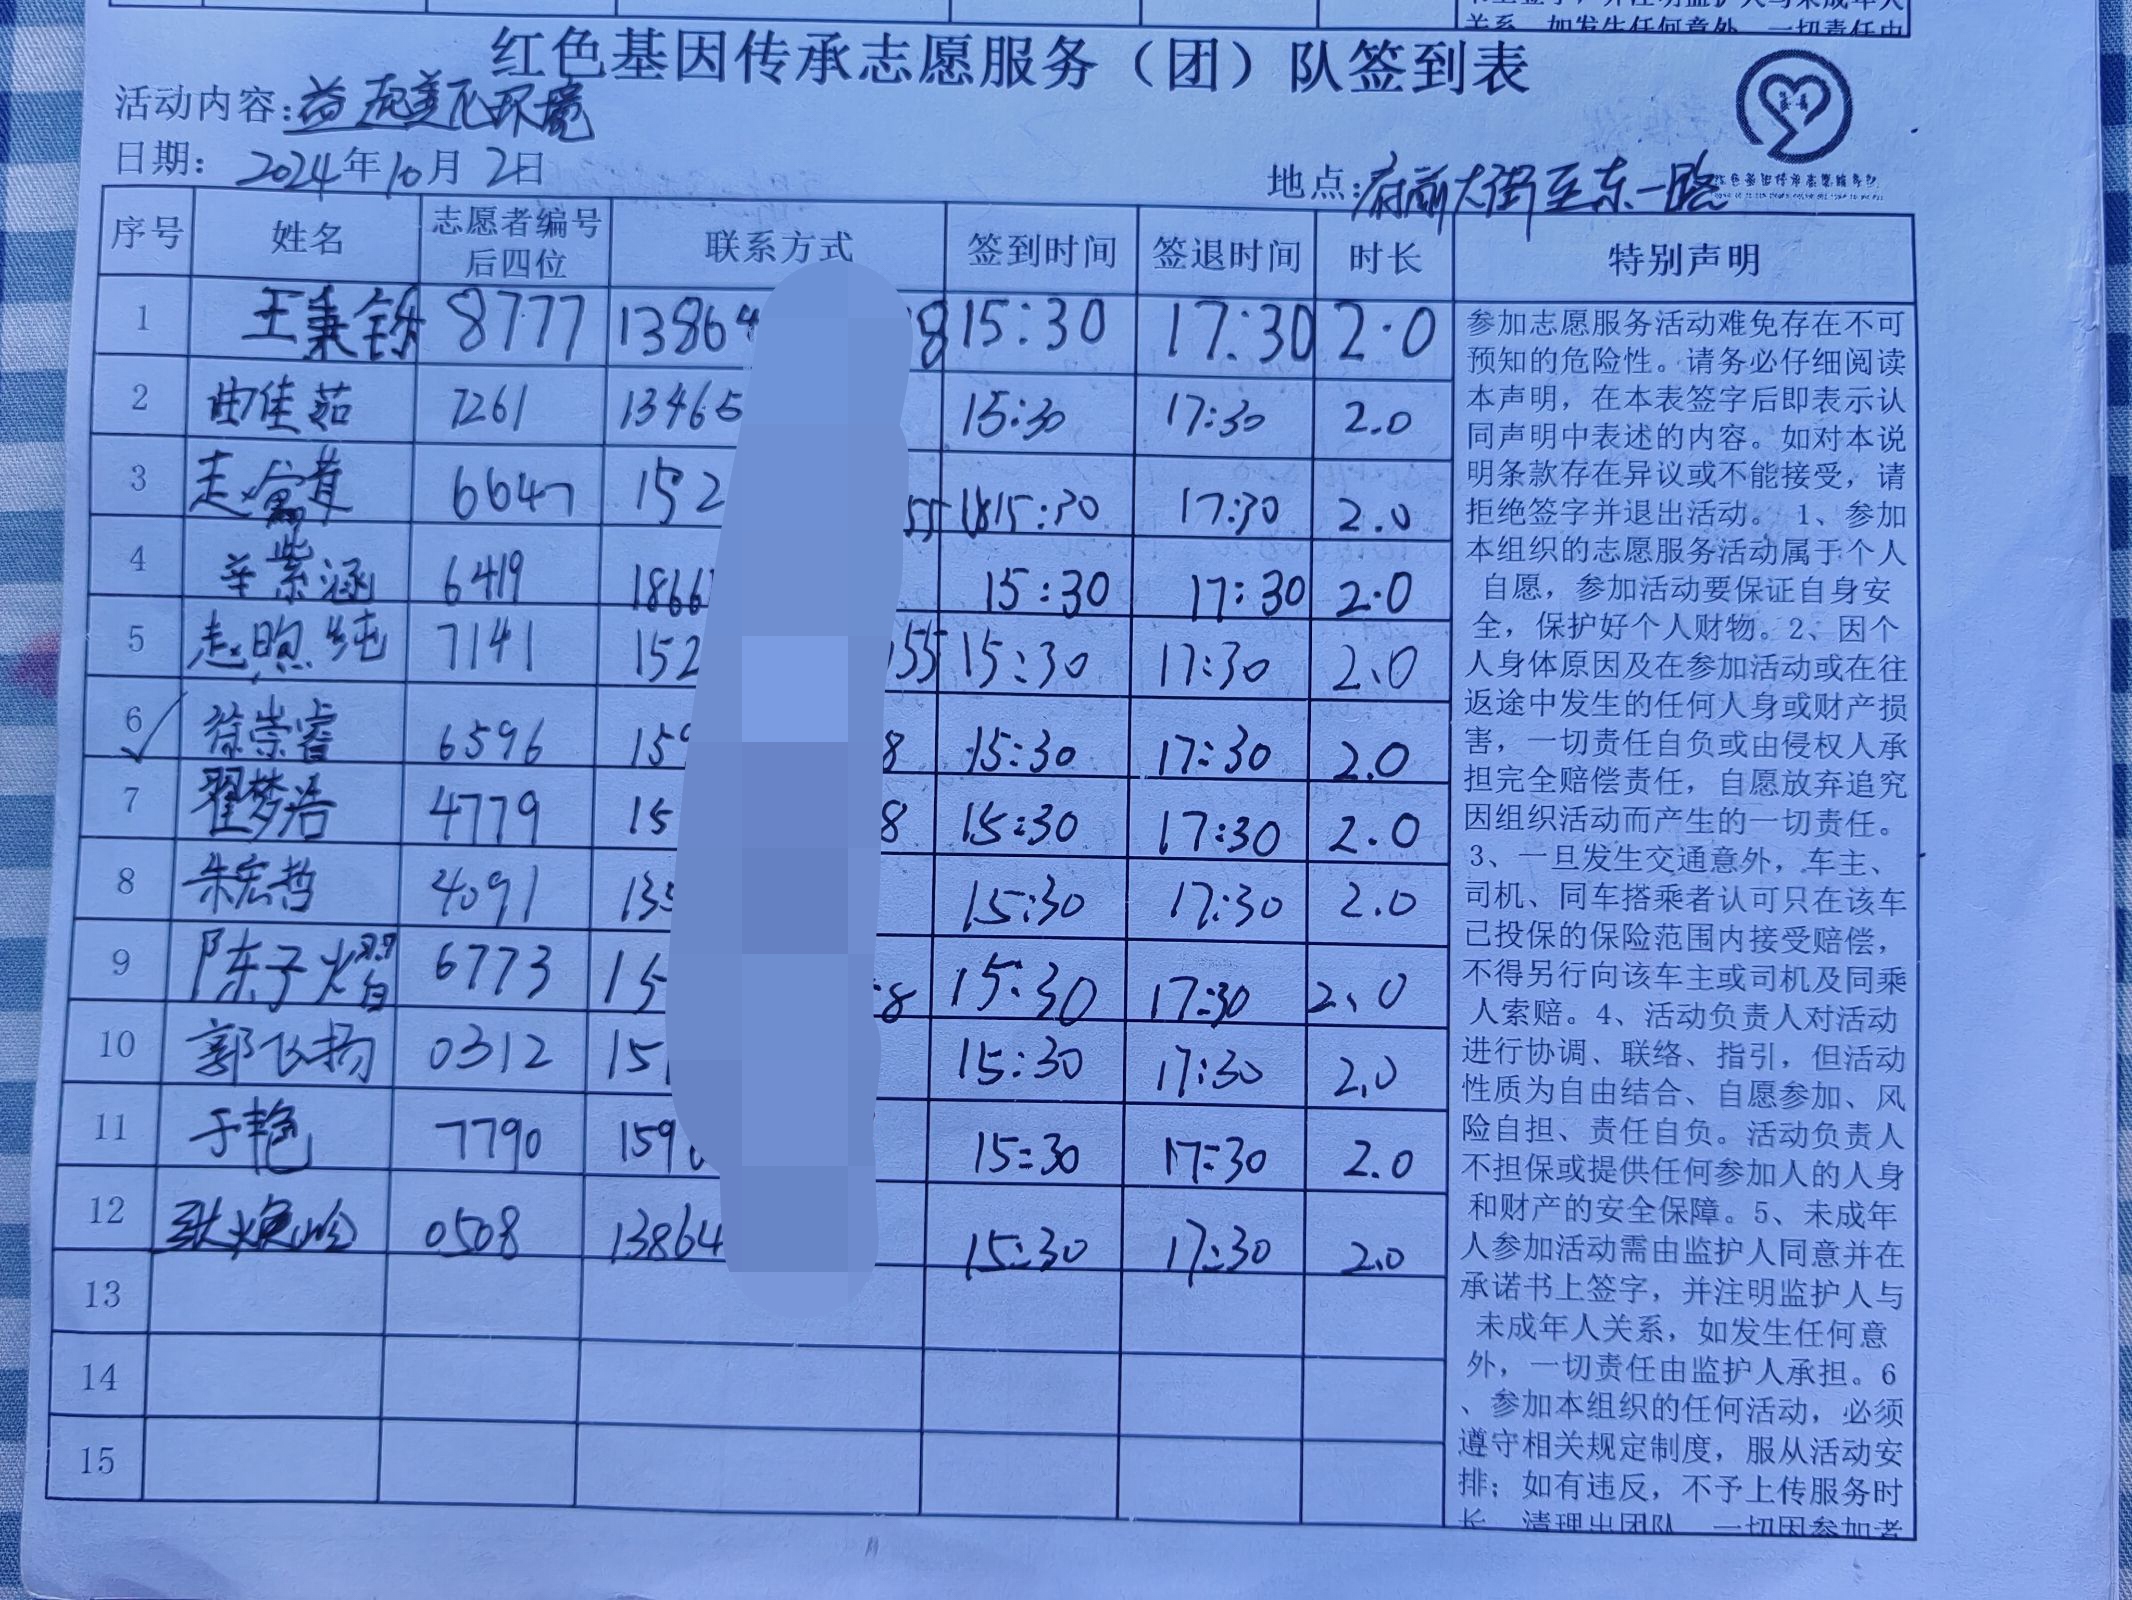 书上签字，并注明监护人与未成年人
关系，如发生任何意外，一切责任由
红色基因传承志愿服务（团）队签到表
活动内容：益起美化环境
日期：2024年10月2日
地点：府前大街至东一路
序号 姓名 志愿者编号后四位 联系方式 签到时间 签退时间 时长 特别声明
1 王秉 8777 13864 8 15:30 17:30 2.0
2 曲佳茹 7261 13465 15:30 17:30 2.0
3 6647 152 55 15:30 17:30 2.0
4 辛紫涵 6419 1866 15:30 17:30 2.0
5 7141 152 155 15:30 17:30 2.0
6 徐崇睿 6596 159 8 15:30 17:30 2.0
7 翟梦浩 4779 15 8 15:30 17:30 2.0
8 朱宏哲 4091 135 15:30 17:30 2.0
9 陈子熠 6773 15 8 15:30 17:30 2.0
10 郭飞扬 0312 15 15:30 17:30 2.0
11 于艳 7790 159 15:30 17:30 2.0
12 耿焕岭 0508 13864 15:30 17:30 2.0
13
14
15
参加志愿服务活动难免存在不可
预知的危险性。请务必仔细阅读
本声明，在本表签字后即表示认
同声明中表述的内容。如对本说
明条款存在异议或不能接受，请
拒绝签字并退出活动。 1、参加
本组织的志愿服务活动属于个人
自愿，参加活动要保证自身安
全，保护好个人财物。2、因个
人身体原因及在参加活动或在往
返途中发生的任何人身或财产损
害，一切责任自负或由侵权人承
担完全赔偿责任，自愿放弃追究
因组织活动而产生的一切责任。
3、一旦发生交通意外，车主、
司机、同车搭乘者认可只在该车
已投保的保险范围内接受赔偿，
不得另行向该车主或司机及同乘
人索赔。4、活动负责人对活动
进行协调、联络、指引，但活动
性质为自由结合、自愿参加、风
险自担、责任自负。活动负责人
不担保或提供任何参加人的人身
和财产的安全保障。5、未成年
人参加活动需由监护人同意并在
承诺书上签字，并注明监护人与
未成年人关系，如发生任何意
外，一切责任由监护人承担。6
、参加本组织的任何活动，必须
遵守相关规定制度，服从活动安
排；如有违反，不予上传服务时
长，清理出团队，一切因参加者